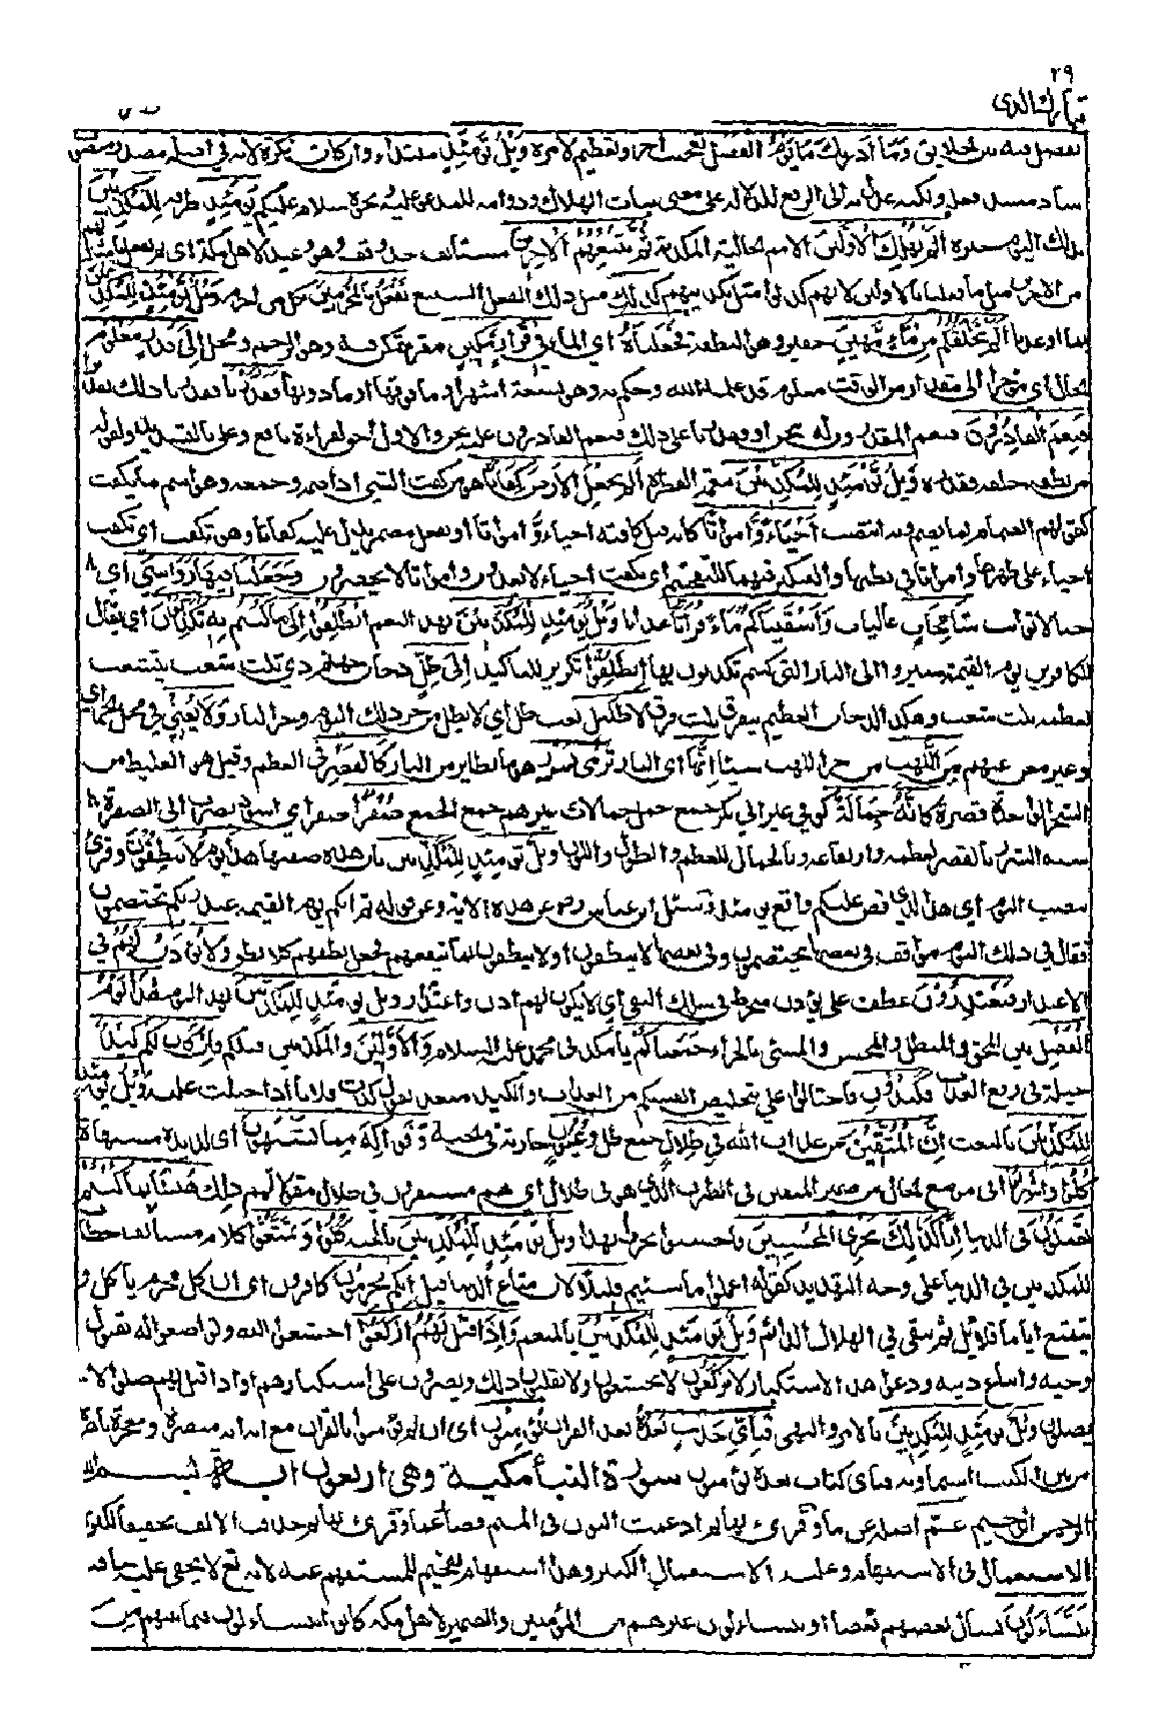 ٢٩
تبارك الذى
يفصل فيه بين الخلايق وَمَا أَدْرٰىكَ مَا يَوْمُ الْفَصْلِ تعجيب آخر وتعظيم لامره وَيْلٌ يَوْمَئِذٍ مبتدأ وان كان نكرة لانه فى اصله مصدر منصوب
ساد مسد فعله ولكنه عدل به الى الرفع للدلالة على معنى ثبات الهلاك ودوامه للمدعو عليه نحوه سلام عليكم يَوْمَئِذٍ ظرفه لِلْمُكَذِّبِينَ
بذلك اليوم خبره أَلَمْ نُهْلِكِ الْأَوَّلِينَ الامم الخالية المكذبة ثُمَّ نُتْبِعُهُمُ الْآخِرِينَ مستأنف بعد وقف وهو وعيد لاهل مكة اى ثم نفعل بامثالهم
من الاخرين مثل ما فعلنا بالاولين لانهم كذبوا مثل تكذيبهم كَذٰلِكَ مثل ذلك الفعل الشنيع نَفْعَلُ بِالْمُجْرِمِينَ بكل من اجرم وَيْلٌ يَوْمَئِذٍ لِلْمُكَذِّبِينَ
بما اوعدنا أَلَمْ نَخْلُقْكُمْ مِنْ مَاءٍ مَهِينٍ حقير وهو النطفة فَجَعَلْنٰهُ اى الماء فِى قَرَارٍ مَكِينٍ مقر يتمكن فيه وهو الرحم ومحل إِلَى قَدَرٍ مَعْلُومٍ
الحال اى مؤخرا الى مقدار من الوقت معلوم قد علمه الله وحكم به وهو تسعة اشهر او ما فوقها او ما دونها فَقَدَرْنَا فقدرنا ذلك تقديرا
فَنِعْمَ الْقَادِرُونَ فنعم المقدرون له نحن او فقدرنا على ذلك فنعم القادرون عليه نحن والاول احق لقراءة نافع وعلى بالتشديد ولقوله
من نطفة خلقه فقدره وَيْلٌ يَوْمَئِذٍ لِلْمُكَذِّبِينَ بنعمة الفطرة أَلَمْ نَجْعَلِ الْأَرْضَ كِفَاتًا هو من كفت الشىء اذا ضمه وجمعه وهو اسم ما يكفت
كقولهم الضمام لما يضم وبه انتصب أَحْيَاءً وَأَمْوَاتًا كانه قيل كافتة احياء وامواتا او بفعل مضمر يدل عليه كفاتا وهو تكفت اى تكفت
احياء على ظهرها وامواتا فى بطنها والتنكير فيهما للتفخيم اى تكفت احياء لا يعدون وامواتا لا يحصرون وَجَعَلْنَا فِيهَا رَوَاسِىَ اى
جبالا ثوابت شَامِخَاتٍ عاليات وَأَسْقَيْنَاكُمْ مَاءً فُرَاتًا عذبا وَيْلٌ يَوْمَئِذٍ لِلْمُكَذِّبِينَ بهذه النعم انْطَلِقُوا إِلَى مَا كُنْتُمْ بِهِ تُكَذِّبُونَ اى يقال
للكافرين يوم القيمة سيروا الى النار التى كنتم تكذبون بها انْطَلِقُوا تكرير للتاكيد إِلَى ظِلٍّ دخان جهنم ذِى ثَلٰثِ شُعَبٍ يتشعب
لعظمه ثلث شعب وهكذا الدخان العظيم يتفرق ثلث فرق لَا ظَلِيلٍ نعت ظل اى لا يظل من حر ذلك اليوم وحر النار وَلَا يُغْنِى فى محل الجر اى
وغير مغن عنهم مِنَ اللَّهَبِ من حر اللهب شيئا إِنَّهَا اى النار تَرْمِى بِشَرَرٍ هو ما تطاير من النار كَالْقَصْرِ فى العظم وقيل هو الغليظ من
الشجر الواحدة قصرة كَأَنَّهُ جِمَالَةٌ كوفى غير ابى بكر جمع جمل جمالات غيرهم جمع الجمع صُفْرٌ جمع اصفر اى اسود يضرب الى الصفرة
شبه الشرر بالقصر لعظمه وارتفاعه وبالجمال للعظم والطول واللون وَيْلٌ يَوْمَئِذٍ لِلْمُكَذِّبِينَ بان هذه صفتها هٰذَا يَوْمُ لَا يَنْطِقُونَ وقرئ
بنصب اليوم اى هذا الذى قص عليكم واقع يومئذ وسئل ابن عباس رضى عن هذه الاية وعن قوله ثم انكم يوم القيمة عند ربكم تختصمون
فقال فى ذلك اليوم مواقف فى بعضها يختصمون وفى بعضها لا ينطقون او لا ينطقون بما ينفعهم فجعل نطقهم كلا نطق وَلَا يُؤْذَنُ لَهُمْ فى
الاعتذار فَيَعْتَذِرُونَ عطف على يؤذن منخرط فى سلك النفى اى لا يكون لهم اذن واعتذار وَيْلٌ يَوْمَئِذٍ لِلْمُكَذِّبِينَ بهذا اليوم هٰذَا يَوْمُ
الْفَصْلِ بين المحق والمبطل والمحسن والمسىء بالجزاء جَمَعْنَاكُمْ يا مكذبى محمد عليه السلام وَالْأَوَّلِينَ والمكذبين قبلكم فَإِنْ كَانَ لَكُمْ كَيْدٌ
حيلة فى دفع العذاب فَكِيدُونِ فاحتالوا على بتخليص انفسكم من العذاب والكيد متعد تقول كدت فلانا اذا احتلت عليه وَيْلٌ يَوْمَئِذٍ
لِلْمُكَذِّبِينَ بالبعث إِنَّ الْمُتَّقِينَ من عذاب الله فِى ظِلَالٍ جمع ظل وَعُيُونٍ جارية فى الجنة وَفَوَاكِهَ مِمَّا يَشْتَهُونَ اى لذيذة مشتهاة
كُلُوا وَاشْرَبُوا فى موضع الحال من ضمير المتقين فى الظرف الذى هو فى ظلال اى هم مستقرون فى ظلال مقولا لهم ذلك هَنِيئًا بِمَا كُنْتُمْ
تَعْمَلُونَ فى الدنيا إِنَّا كَذٰلِكَ نَجْزِى الْمُحْسِنِينَ فاحسنوا تجزوا بهذا وَيْلٌ يَوْمَئِذٍ لِلْمُكَذِّبِينَ بالجنة كُلُوا وَتَمَتَّعُوا كلام مستأنف خطاب
للمكذبين فى الدنيا على وجه التهديد كقوله اعملوا ما شئتم قَلِيلًا لان متاع الدنيا قليل إِنَّكُمْ مُجْرِمُونَ كافرون اى ان كل مجرم يأكل و
يتمتع اياما قلائل ثم يبقى فى الهلاك الدائم وَيْلٌ يَوْمَئِذٍ لِلْمُكَذِّبِينَ بالنعم وَإِذَا قِيلَ لَهُمُ ارْكَعُوا اخشعوا لله وتواضعوا له بقبول
وحيه واتباع دينه ودعوا هذا الاستكبار لَا يَرْكَعُونَ لا يخشعون ولا يقبلون ذلك ويصرون على استكبارهم او اذا قيل لهم صلوا لا
يصلون وَيْلٌ يَوْمَئِذٍ لِلْمُكَذِّبِينَ بالامر والنهى فَبِأَىِّ حَدِيثٍ بَعْدَهُ بعد القران يُؤْمِنُونَ اى ان لم يؤمنوا بالقران مع انه اية مبصرة ومعجزة باهرة
من بين الكتب السماوية فباى كتاب بعده يؤمنون سورة النبأ مكية وهى اربعون اية بسم الله
الرحمن الرحيم عَمَّ اصله عن ما وقرئ بها ثم ادغمت النون فى الميم فصار عما وقرئ بها ثم حذفت الالف تخفيفا لكثرة
الاستعمال فى الاستفهام وعليه الاستعمال الكثير وهذا استفهام تفخيم للمستفهم عنه لانه تع لا يخفى عليه خافية
يَتَسَاءَلُونَ يسأل بعضهم بعضا او يتساءلون غيرهم من المؤمنين والضمير لاهل مكة كانوا يتساءلون فيما بينهم عن